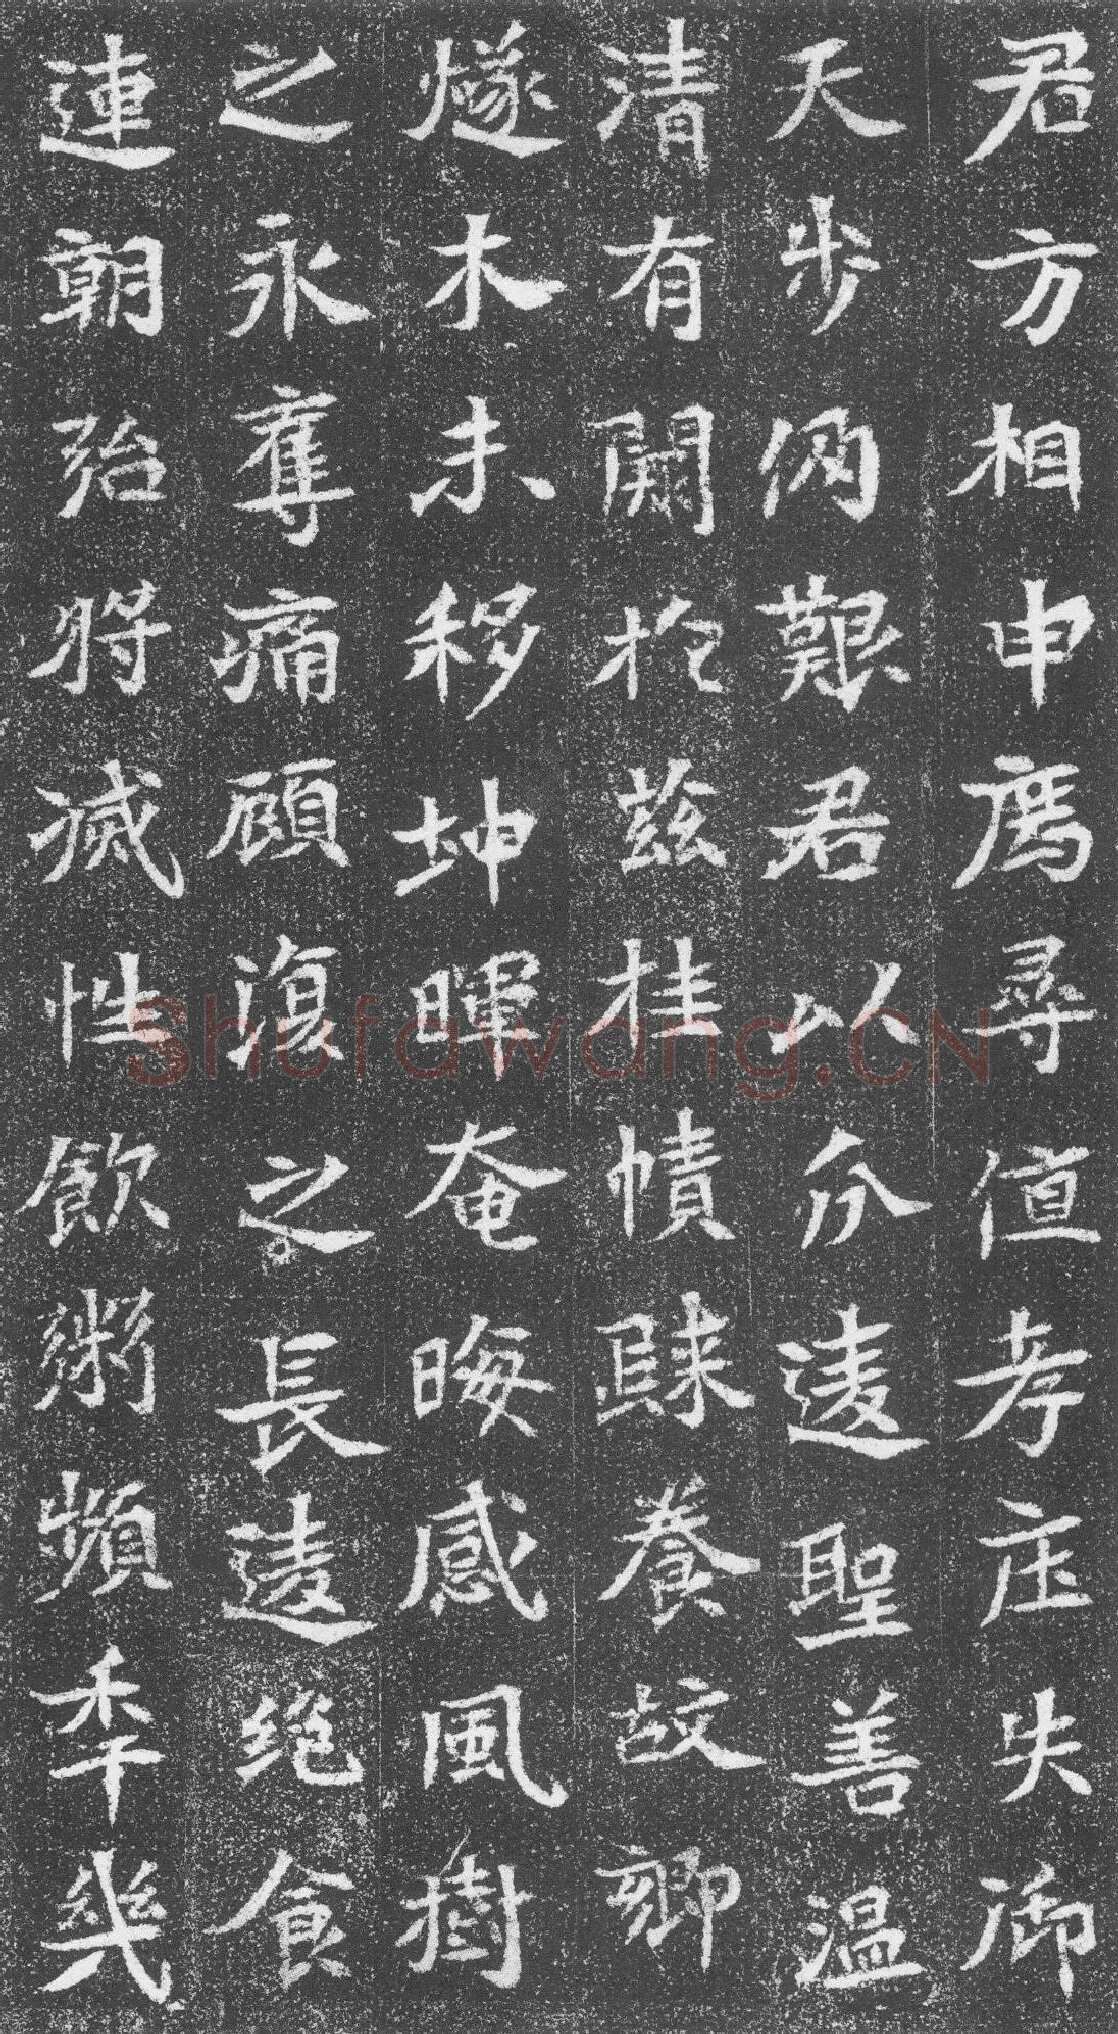 君方相申尋值孝庄失御
天步艱君以介遠聖善溫
清有闕於茲挂幘歸養故鄉
燧木未移坤暉奄晦感風樹
之永奪痛顧復之長遠絕食
連朝殆將滅性飲粥頻年幾
Shufawang.CN